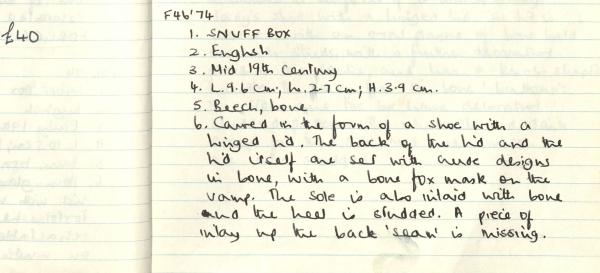 £40
F46'74
1. SNUFF BOX
2. English
3. Mid 19th Century
4. L. 9.6 cm; W. 2.7 cm; H. 3.9 cm.
5. Beech, bone
6. Carved in the form of a shoe with a
hinged lid. The back of the lid and the
lid itself are set with crude designs
in bone, with a bone fox mask on the
vamp. The sole is also inlaid with bone
and the heel is studded. A piece of
inlay up the back 'seam' is missing.